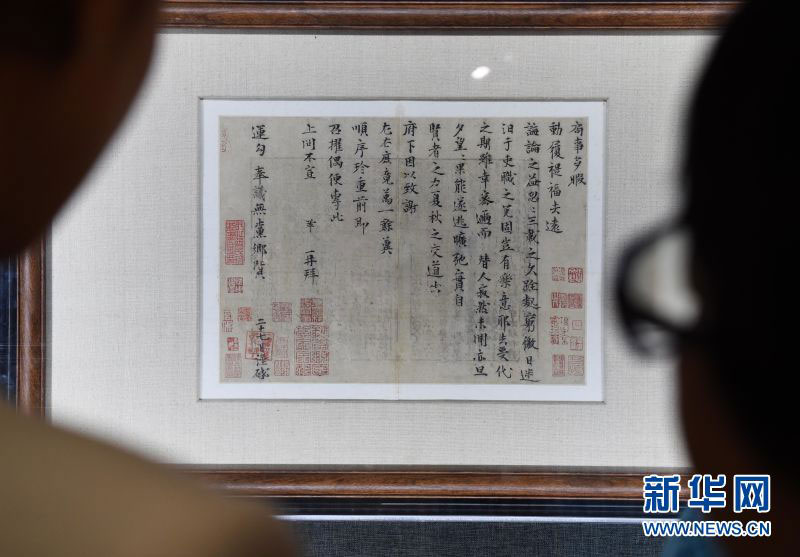 局事多暇
動履禔福去遠
誨論之益忽〻三載之久跧處窮徼日迷
汩于吏職之冗固豈有樂意耶去受代
之期雖幸密邇而替人寂然未聞亦旦
夕望〻果能遂逃曠弛實自
賢者之力夏秋之交道出
府下因以致謝
左右庶竟萬一餘冀
順序珍重前即
召擢偶便專此
上問不宣 鞏 再拜
運勾奉議無黨鄉賢
二十七日謹啟
新华网
WWW.NEWS.CN